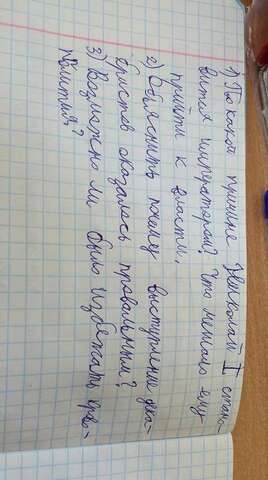 1) По какой причине Николай I стано-
вится императором? Что мешало ему
прийти к власти.
2) Объяснить почему выступление дека-
бристов оказалось провальным?
3) Возможно ли было избежать крово-
пролития?